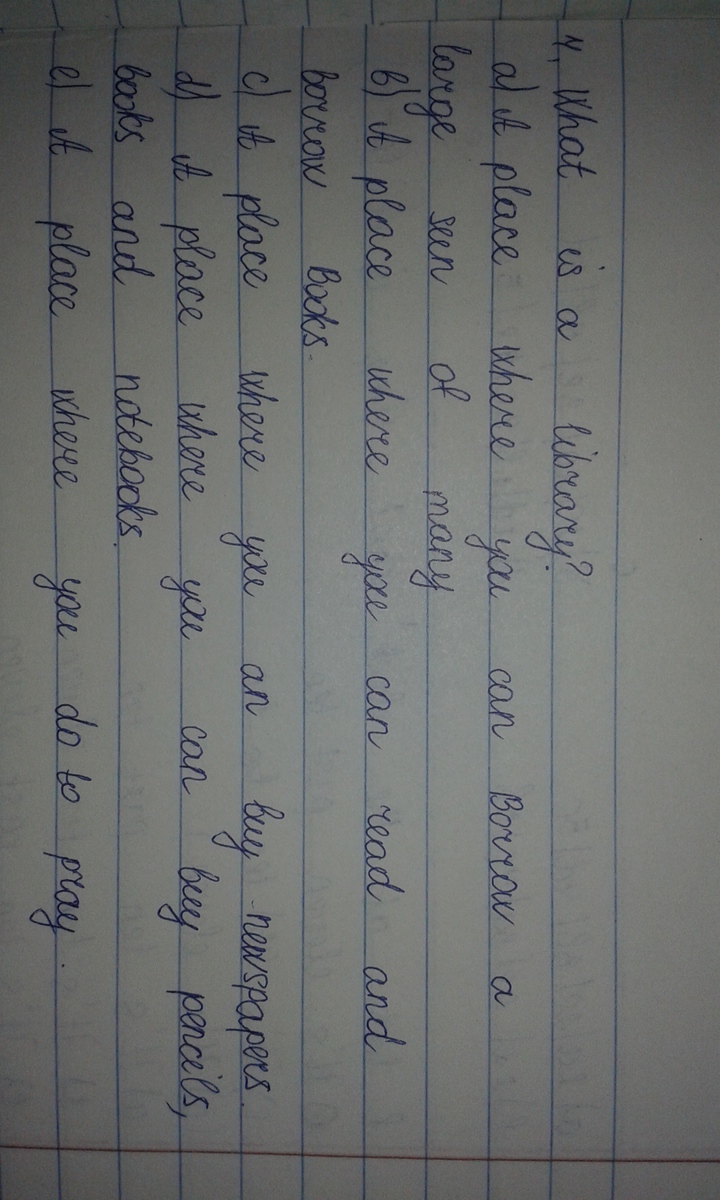 4, What is a library?
a) A place where you can Borrow a
large sun of many
b) A place where you can read and
borrow Books.
c) A place where you an buy newspapers.
d) A place where you can buy pencils,
books and notebooks.
e) A place where you do to pray.